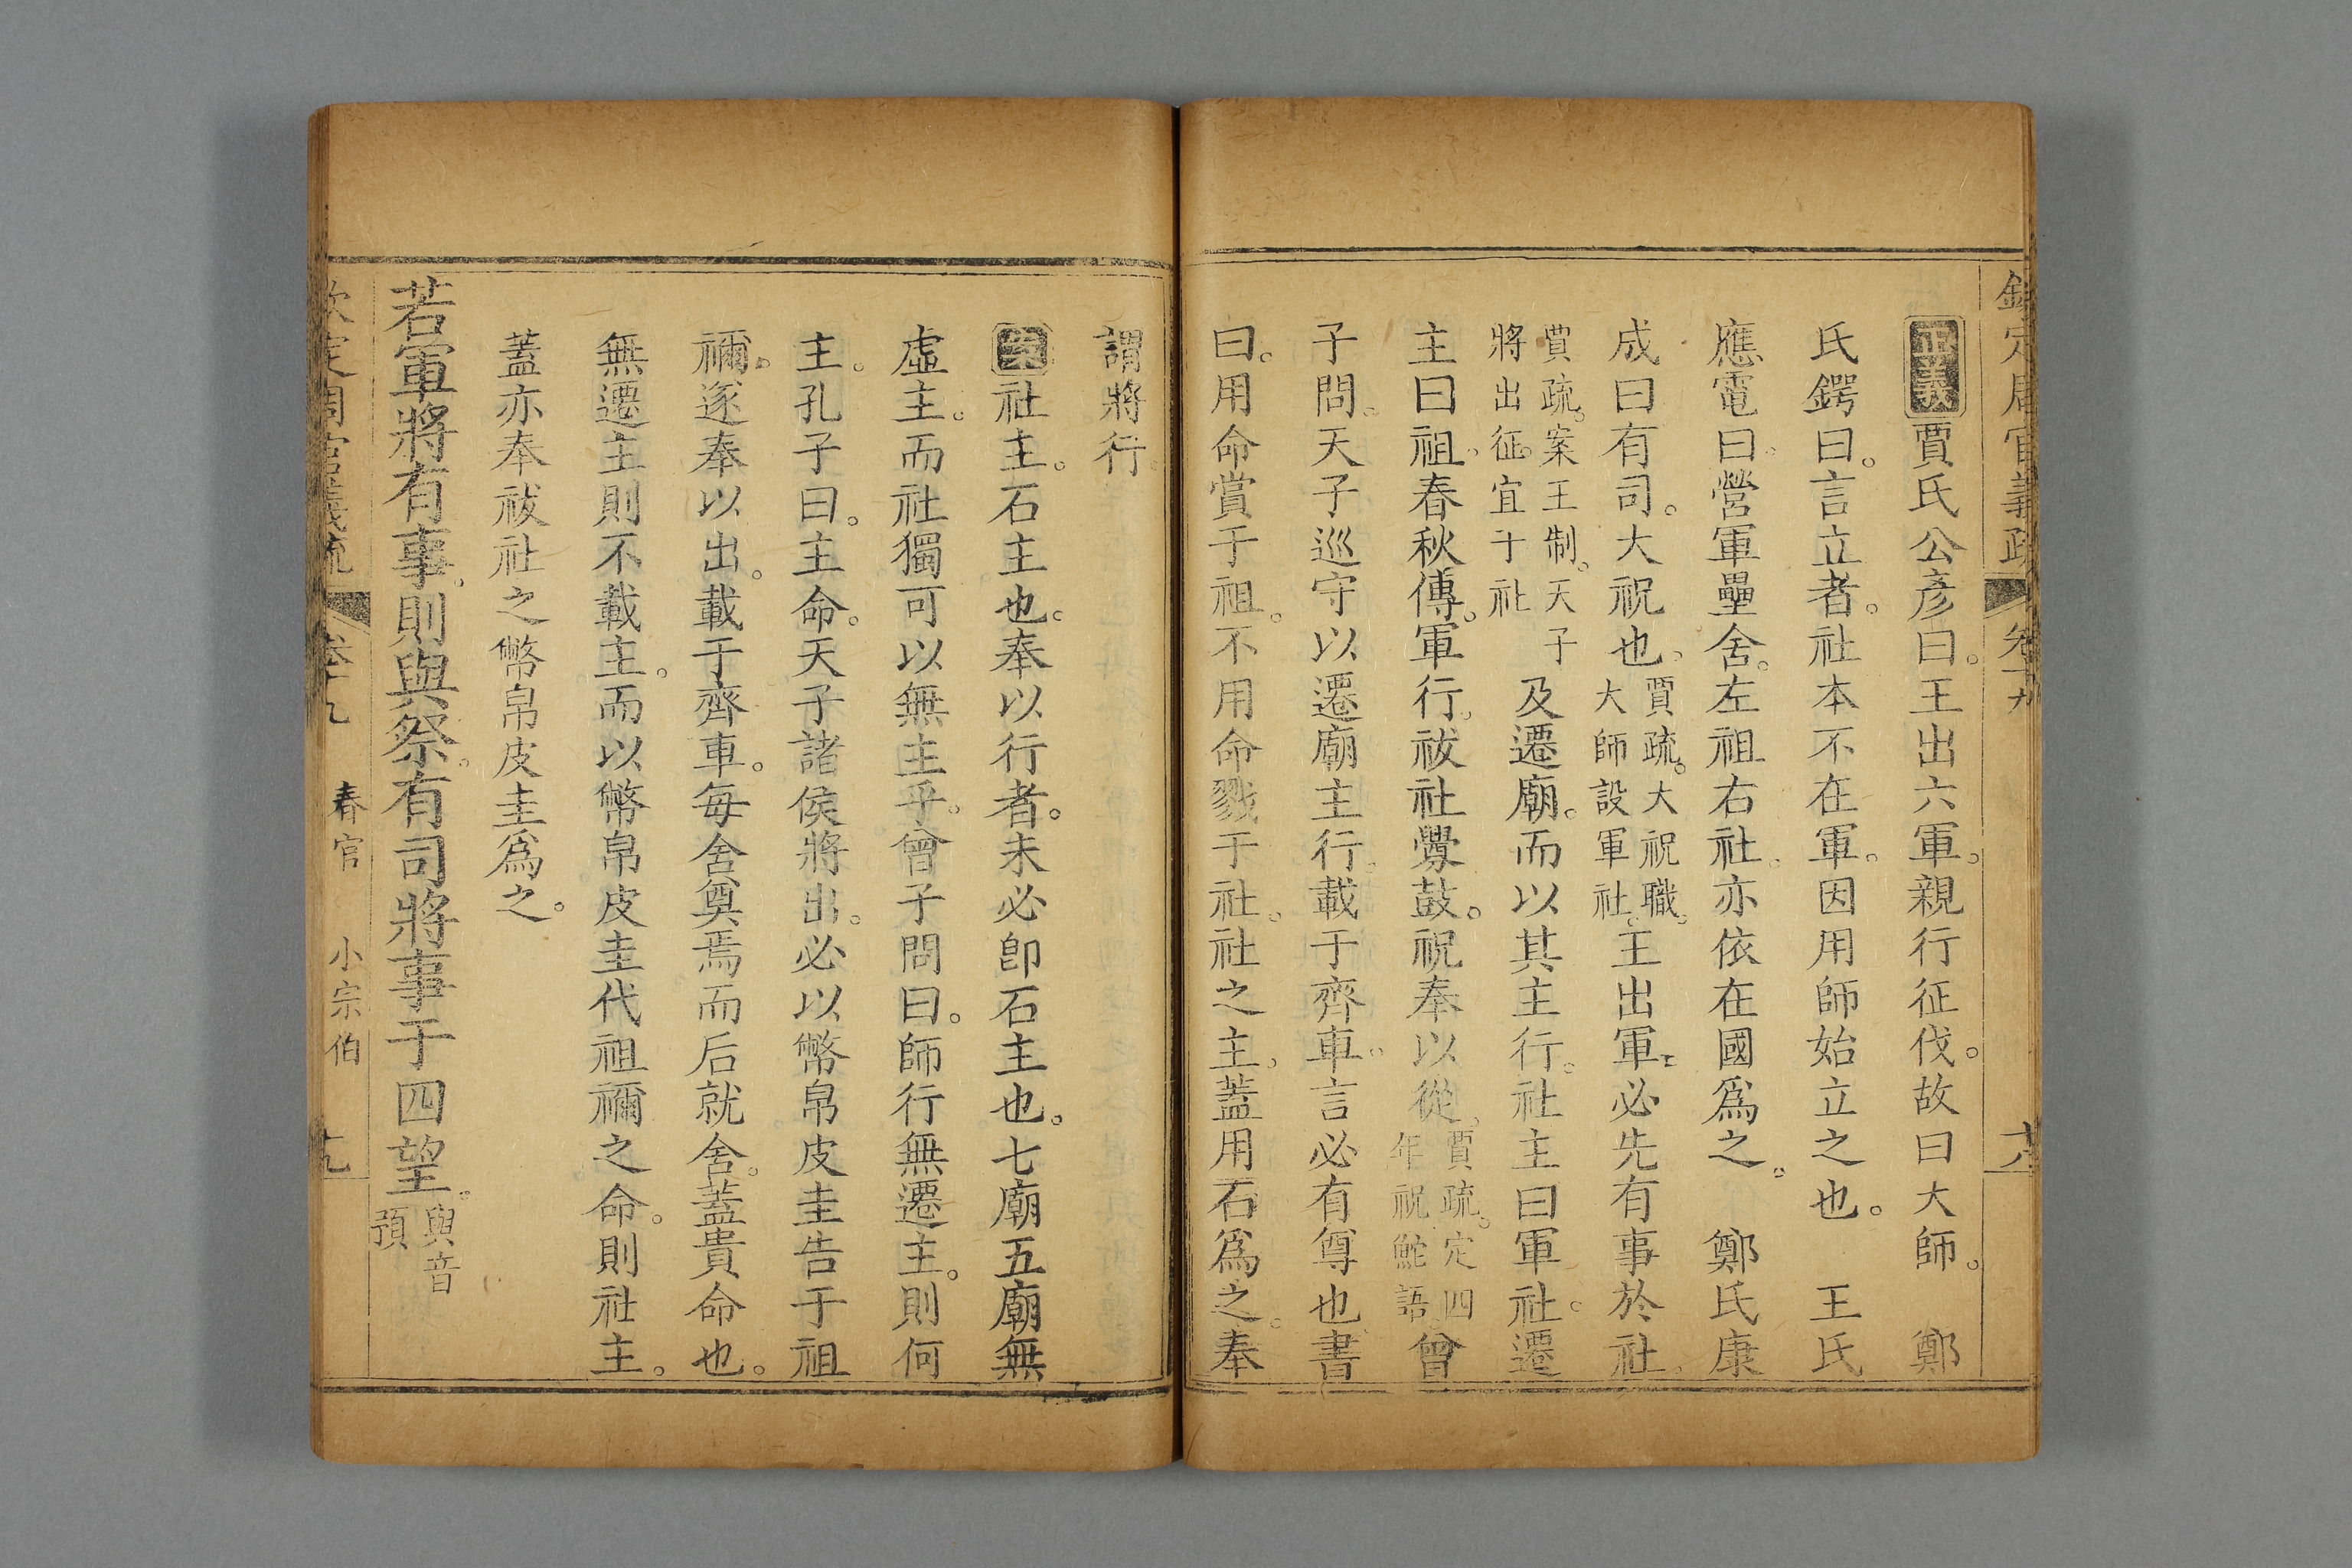 欽定周官義疏 卷十九 十八
正義賈氏公彥曰。王出六軍。親行征伐。故曰大師。 鄭
氏鍔曰。言立者。社本不在軍。因用師始立之也。 王氏
應電曰。營軍壘舍。左祖右社。亦依在國爲之。 鄭氏康
成曰有司。大祝也。賈疏。大祝職。大師設軍社。王出軍。必先有事於社。
賈疏。案王制。天子將出征。宜于社及遷廟。而以其主行。社主曰軍社。遷
主曰祖。春秋傳。軍行。祓社釁鼓。祝奉以從。賈疏。定四年祝鮀語。曾
子問。天子巡守以遷廟主行。載于齊車。言必有尊也書
曰。用命賞于祖。不用命戮于社。社之主。蓋用石爲之。奉
謂將行。
案社主。石主也。奉以行者。未必卽石主也。七廟五廟無
虛主。而社獨可以無主乎。曾子問曰。師行無遷主。則何
主。孔子曰。主命。天子諸侯將出。必以幣帛皮圭告于祖
禰。遂奉以出。載于齊車。每舍奠焉而后就舍。蓋貴命也。
無遷主則不載主。而以幣帛皮圭代祖禰之命。則社主。
蓋亦奉祓社之幣帛皮圭爲之。
若軍將有事。則與祭。有司將事于四望。與音預
欽定周官義疏 卷十九 春官 小宗伯 十九